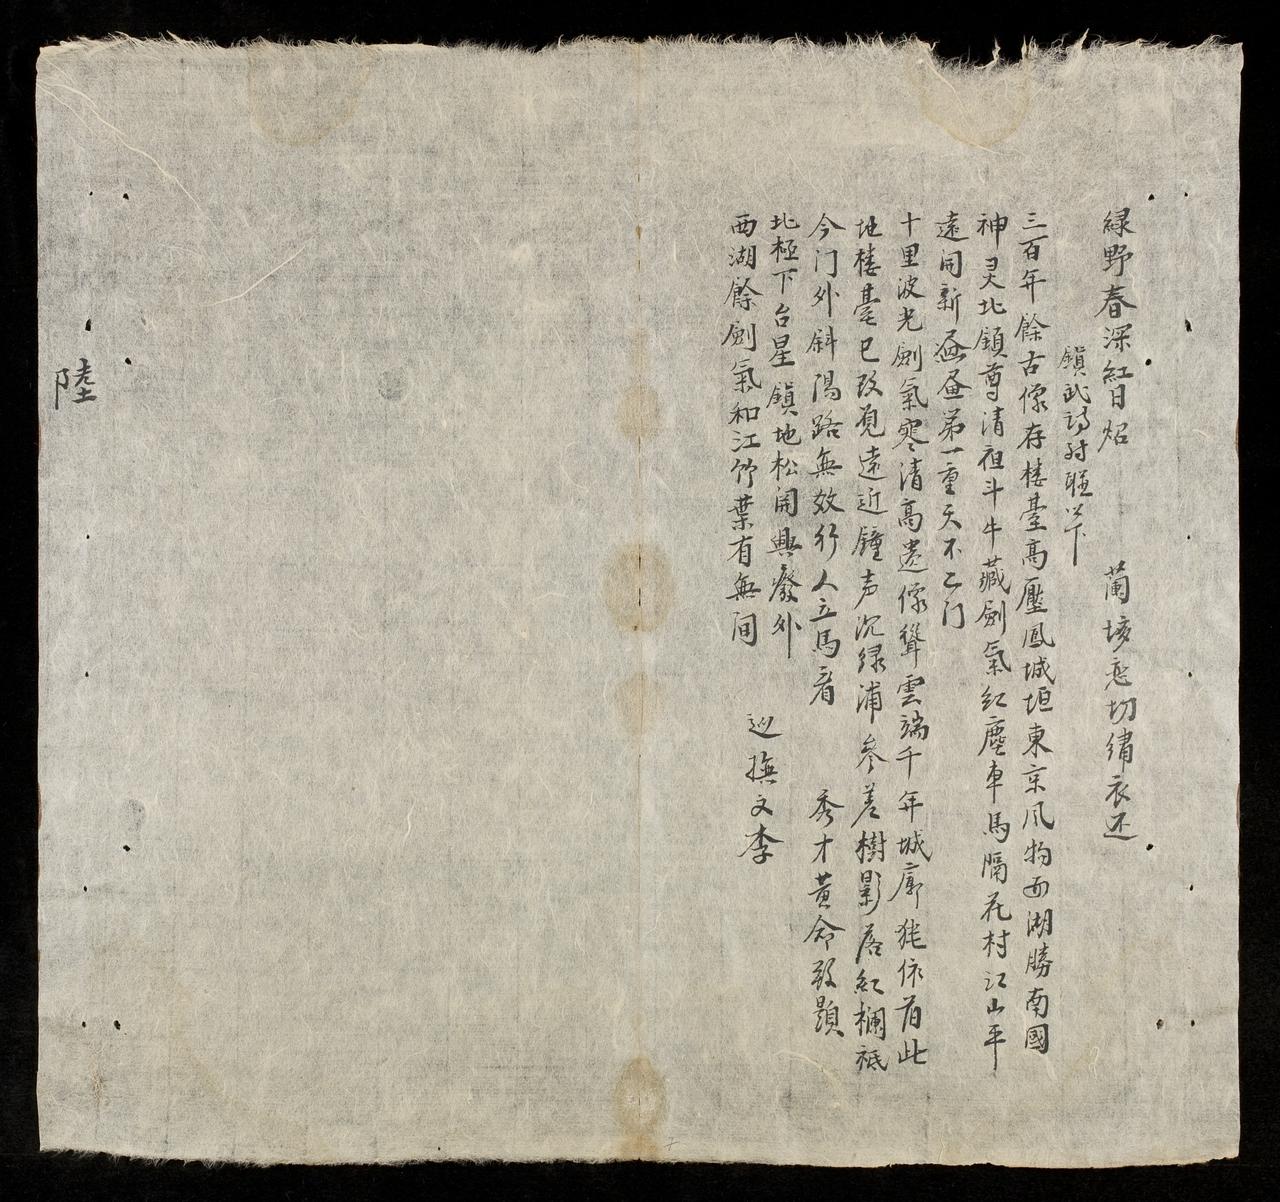 緑野春深紅日炤 蘭垓恋切繡衣还
鎮武詩对聯以下
三百年餘古像存楼臺髙壓鳳城垣東京风物西湖勝南國
神灵北鎮尊清祖斗牛藏劍氣紅塵車馬隔花村江山平
遠闲新盃昼第一重天不二门
十里波光劍氣寒清髙遺像聳雲端千年城廓猶依旧此
地楼臺已改覌遠近鐘声沉绿浦參差樹影落紅欄祗
今门外斜陽路無效行人立馬看 秀才黃命致題
北極下台星鎮地松闲興廢外
西湖餘劍氣和江竹葉有無间 巡撫文李
陸